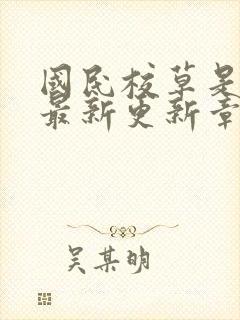 國民校草是
最新更新章
吴某明